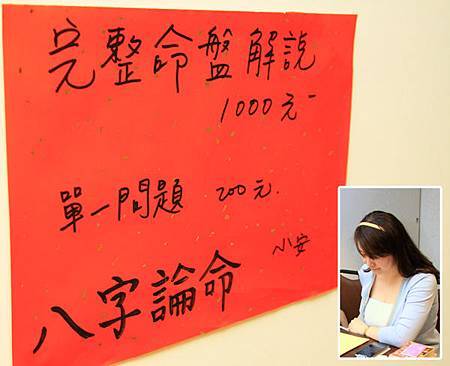 完整命盤解說
1000元
單一問題 200元.
小安
八字論命